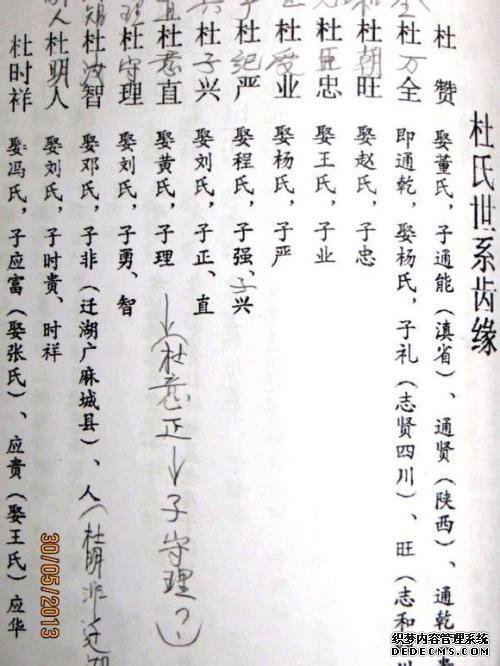 杜氏世系齿缘
杜 赞 娶董氏，子通能（滇省）、通贤（陕西）、通乾、贵
杜万全 即通乾，娶杨氏，子礼（志贤四川）、旺（志和
杜朝旺 娶赵氏，子忠
杜臣忠 娶王氏，子业
杜受业 娶杨氏，子严
杜纪严 娶程氏，子强、子兴
杜子兴 娶刘氏，子正、直
杜意直 娶黄氏，子理
→（杜意正→子守理？）
杜守理 娶刘氏，子勇、智
杜汝智 娶邓氏，子非（迁湖广麻城县）、人（杜明非迁湖
杜明人 娶刘氏，子时贵、时祥
杜时祥 娶冯氏，子应富（娶张氏）、应贵（娶王氏）应华
30/05/2013
织梦内容管理系统
DEDECMS.COM